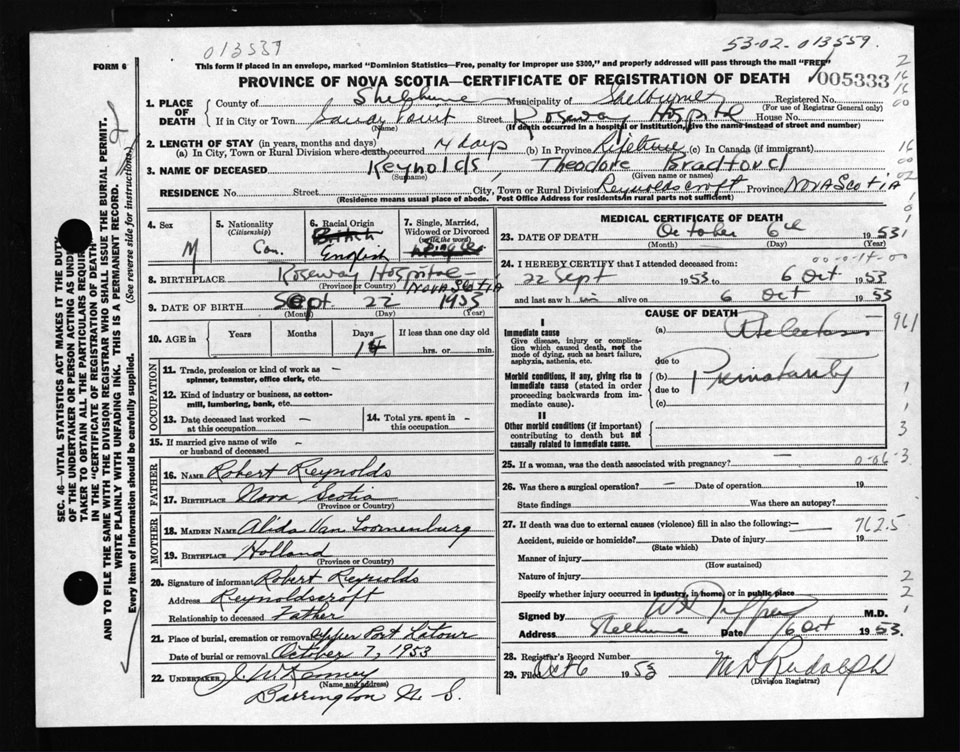 013537
53-02-013559.
FORM 6
This form if placed in an envelope, marked "Dominion Statistics—Free, penalty for improper use $300," and properly addressed will pass through the mail "FREE"
PROVINCE OF NOVA SCOTIA—CERTIFICATE OF REGISTRATION OF DEATH
005333
1. PLACE OF DEATH
County of Shelburne Municipality of Shelburne Registered No.
(For use of Registrar General only)
If in City or Town Sandy Point Street Roseway Hospital House No.
(Name) (If death occurred in a hospital or institution, give the name instead of street and number)
2. LENGTH OF STAY (in years, months and days)
(a) In City, Town or Rural Division where death occurred 14 days (b) In Province Lifetime (c) In Canada (if immigrant)
3. NAME OF DECEASED Reynolds, Theodore Bradford
(Surname) (Given name or names)
RESIDENCE No. Street City, Town or Rural Division Reynoldscroft Province NOVA SCOTIA
(Residence means usual place of abode. Post Office Address for residents in rural parts not sufficient)
4. Sex M
5. Nationality (Citizenship) Can.
6. Racial Origin British English
7. Single, Married, Widowed or Divorced (write the word) Single
8. BIRTHPLACE Roseway Hospital - NOVA SCOTIA
(Province or Country)
9. DATE OF BIRTH Sept. 22 1953
(Month) (Day) (Year)
10. AGE in Years Months Days 14 If less than one day old hrs. or min.
OCCUPATION
11. Trade, profession or kind of work as spinner, teamster, office clerk, etc. -
12. Kind of industry or business, as cotton-mill, lumbering, bank, etc. -
13. Date deceased last worked at this occupation -
14. Total yrs. spent in this occupation -
15. If married give name of wife or husband of deceased -
FATHER
16. NAME Robert Reynolds
17. BIRTHPLACE Nova Scotia
(Province or Country)
MOTHER
18. MAIDEN NAME Alida Van Loomenburg
19. BIRTHPLACE Holland
(Province or Country)
20. Signature of informant Robert Reynolds
Address Reynoldscroft
Relationship to deceased Father
21. Place of burial, cremation or removal Upper Port Latour
Date of burial or removal October 7, 1953
22. UNDERTAKER J. McKenney
(Name and address)
Barrington N. S.
MEDICAL CERTIFICATE OF DEATH
23. DATE OF DEATH October 6th 1953
(Month) (Day) (Year)
00-0-14-00
24. I HEREBY CERTIFY that I attended deceased from:
22 Sept 1953 to 6 Oct 1953
and last saw h im alive on 6 Oct 1953
CAUSE OF DEATH
I
Immediate cause
Give disease, injury or complication which caused death, not the mode of dying, such as heart failure, asphyxia, asthenia, etc.
(a) Atelectasis
due to
Morbid conditions, if any, giving rise to immediate cause (stated in order proceeding backwards from immediate cause).
(b) Prematurity
due to
(c)
II
Other morbid conditions (if important) contributing to death but not causally related to immediate cause.
25. If a woman, was the death associated with pregnancy? -
0-06-3
26. Was there a surgical operation? - Date of operation 19
State findings Was there an autopsy?
27. If death was due to external causes (violence) fill in also the following:—
762.5
Accident, suicide or homicide? Date of injury 19
(State which)
Manner of injury
(How sustained)
Nature of injury
Specify whether injury occurred in industry, in home, or in public place
Signed by M.D.
Address Shelburne Date 6 Oct 1953.
28. Registrar's Record Number
29. Filed Oct 6 1953 Rudolph
(Division Registrar)
SEC. 46—VITAL STATISTICS ACT MAKES IT THE DUTY
OF THE UNDERTAKER OR PERSON ACTING AS UNDER
TAKER TO OBTAIN ALL THE PARTICULARS REQUIR
IN THE "CERTIFICATE OF REGISTRATION OF DEATH"
AND TO FILE THE SAME WITH THE DIVISION REGISTRAR WHO SHALL ISSUE THE BURIAL PERMIT.
WRITE PLAINLY WITH UNFADING INK. THIS IS A PERMANENT RECORD.
Every item of information should be carefully supplied. (See reverse side for instructions).